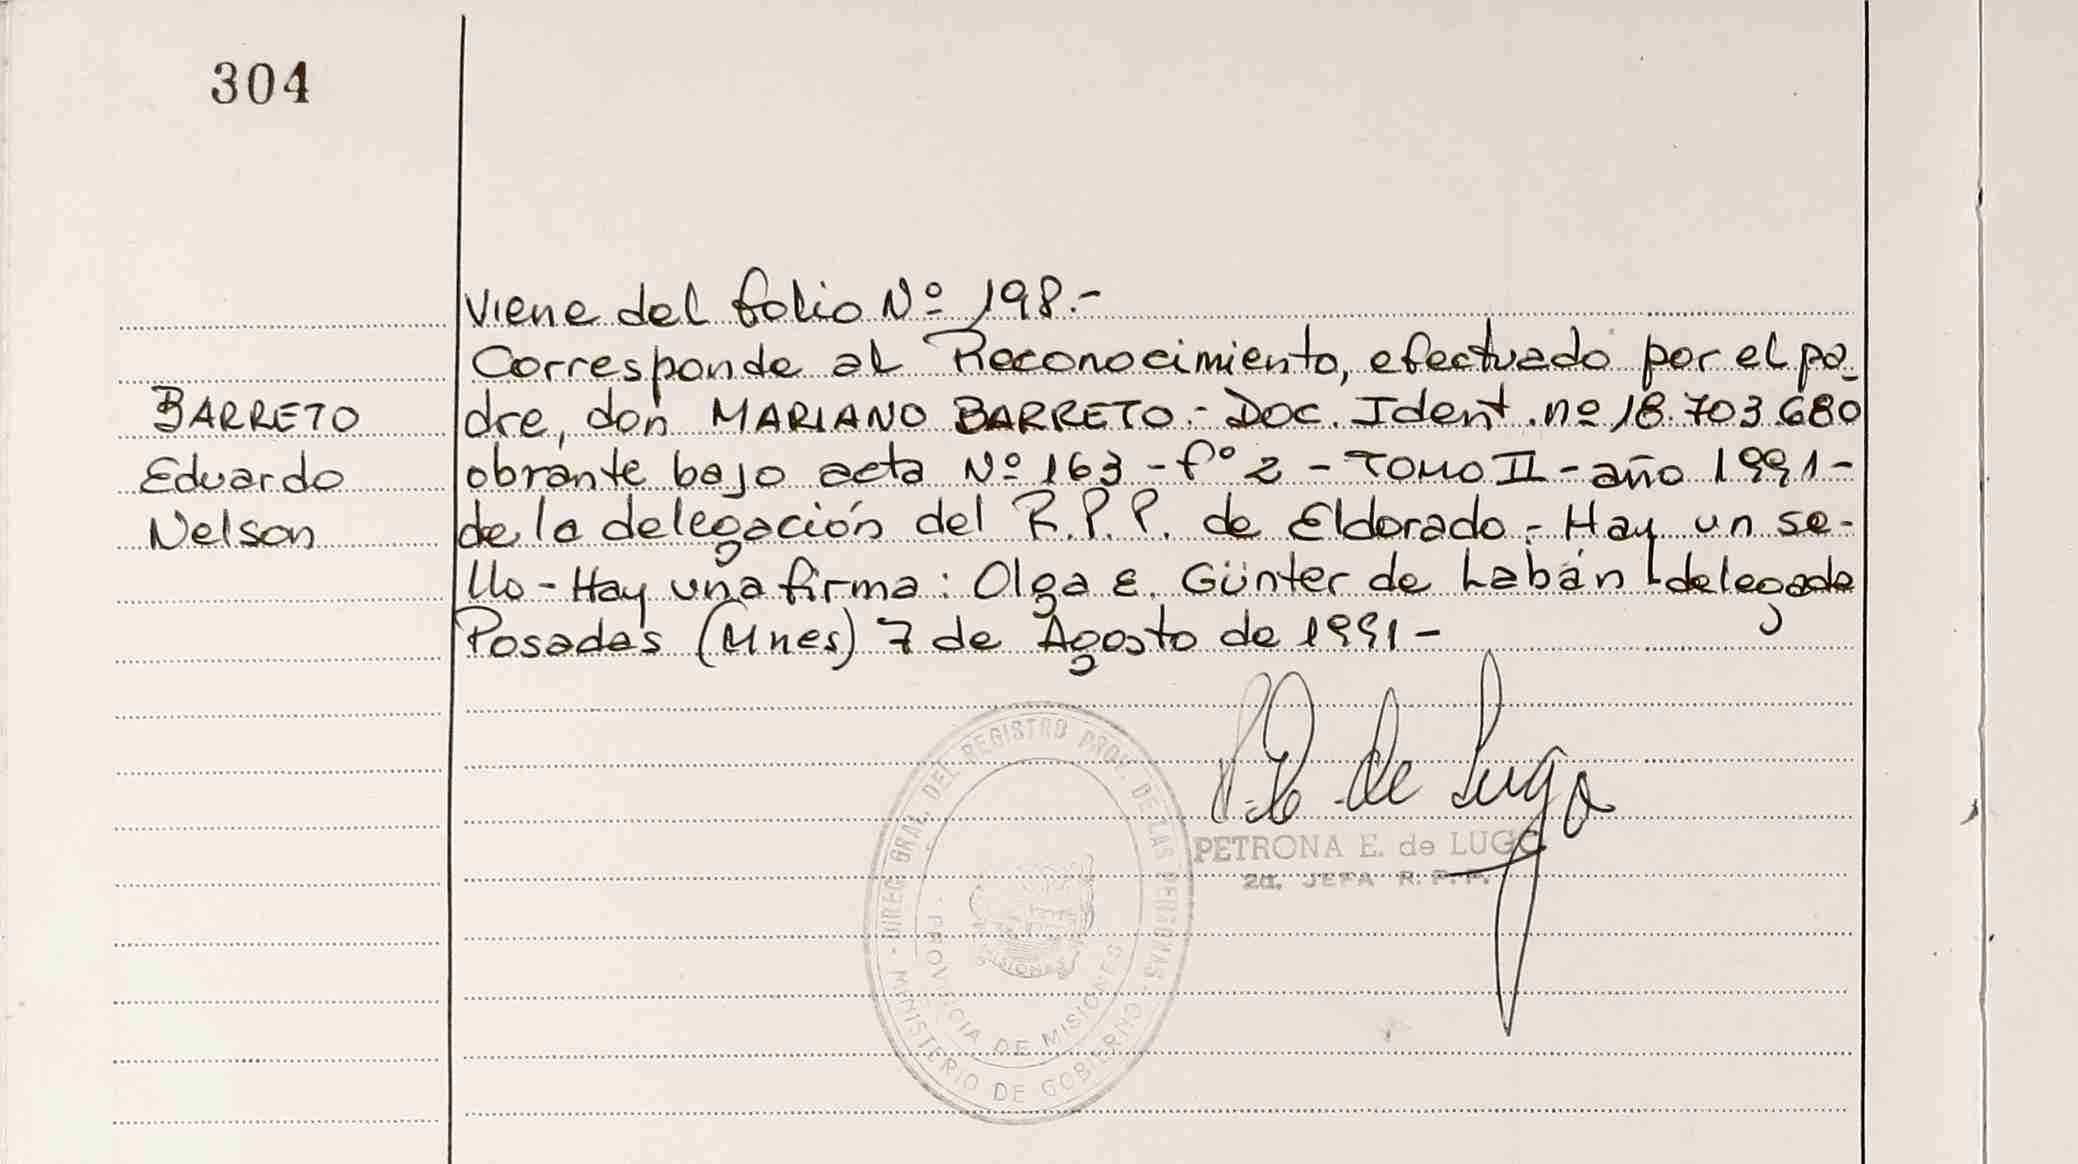 304
Viene del folio Nº 198.-
Corresponde al Reconocimiento, efectuado por el pa-
BARRETO
dre, don MARIANO BARRETO.- Doc. Ident. nº 18.703.680
Eduardo
obrante bajo acta Nº 163 - fº 2 - TOMO II - año 1991 -
Nelson
de la delegación del R.P.P. de Eldorado.- Hay un se-
llo - Hay una firma: Olga E. Günter de Labán - delegada
Posadas (Mnes) 7 de Agosto de 1991 -
P.E. de Lugo
PETRONA E. de LUGO
2a. JEFA R.P.P.
DIREC. GRAL. DEL REGISTRO PROV. DE LAS PERSONAS
PROVINCIA DE MISIONES
MISIONES
MINISTERIO DE GOBIERNO